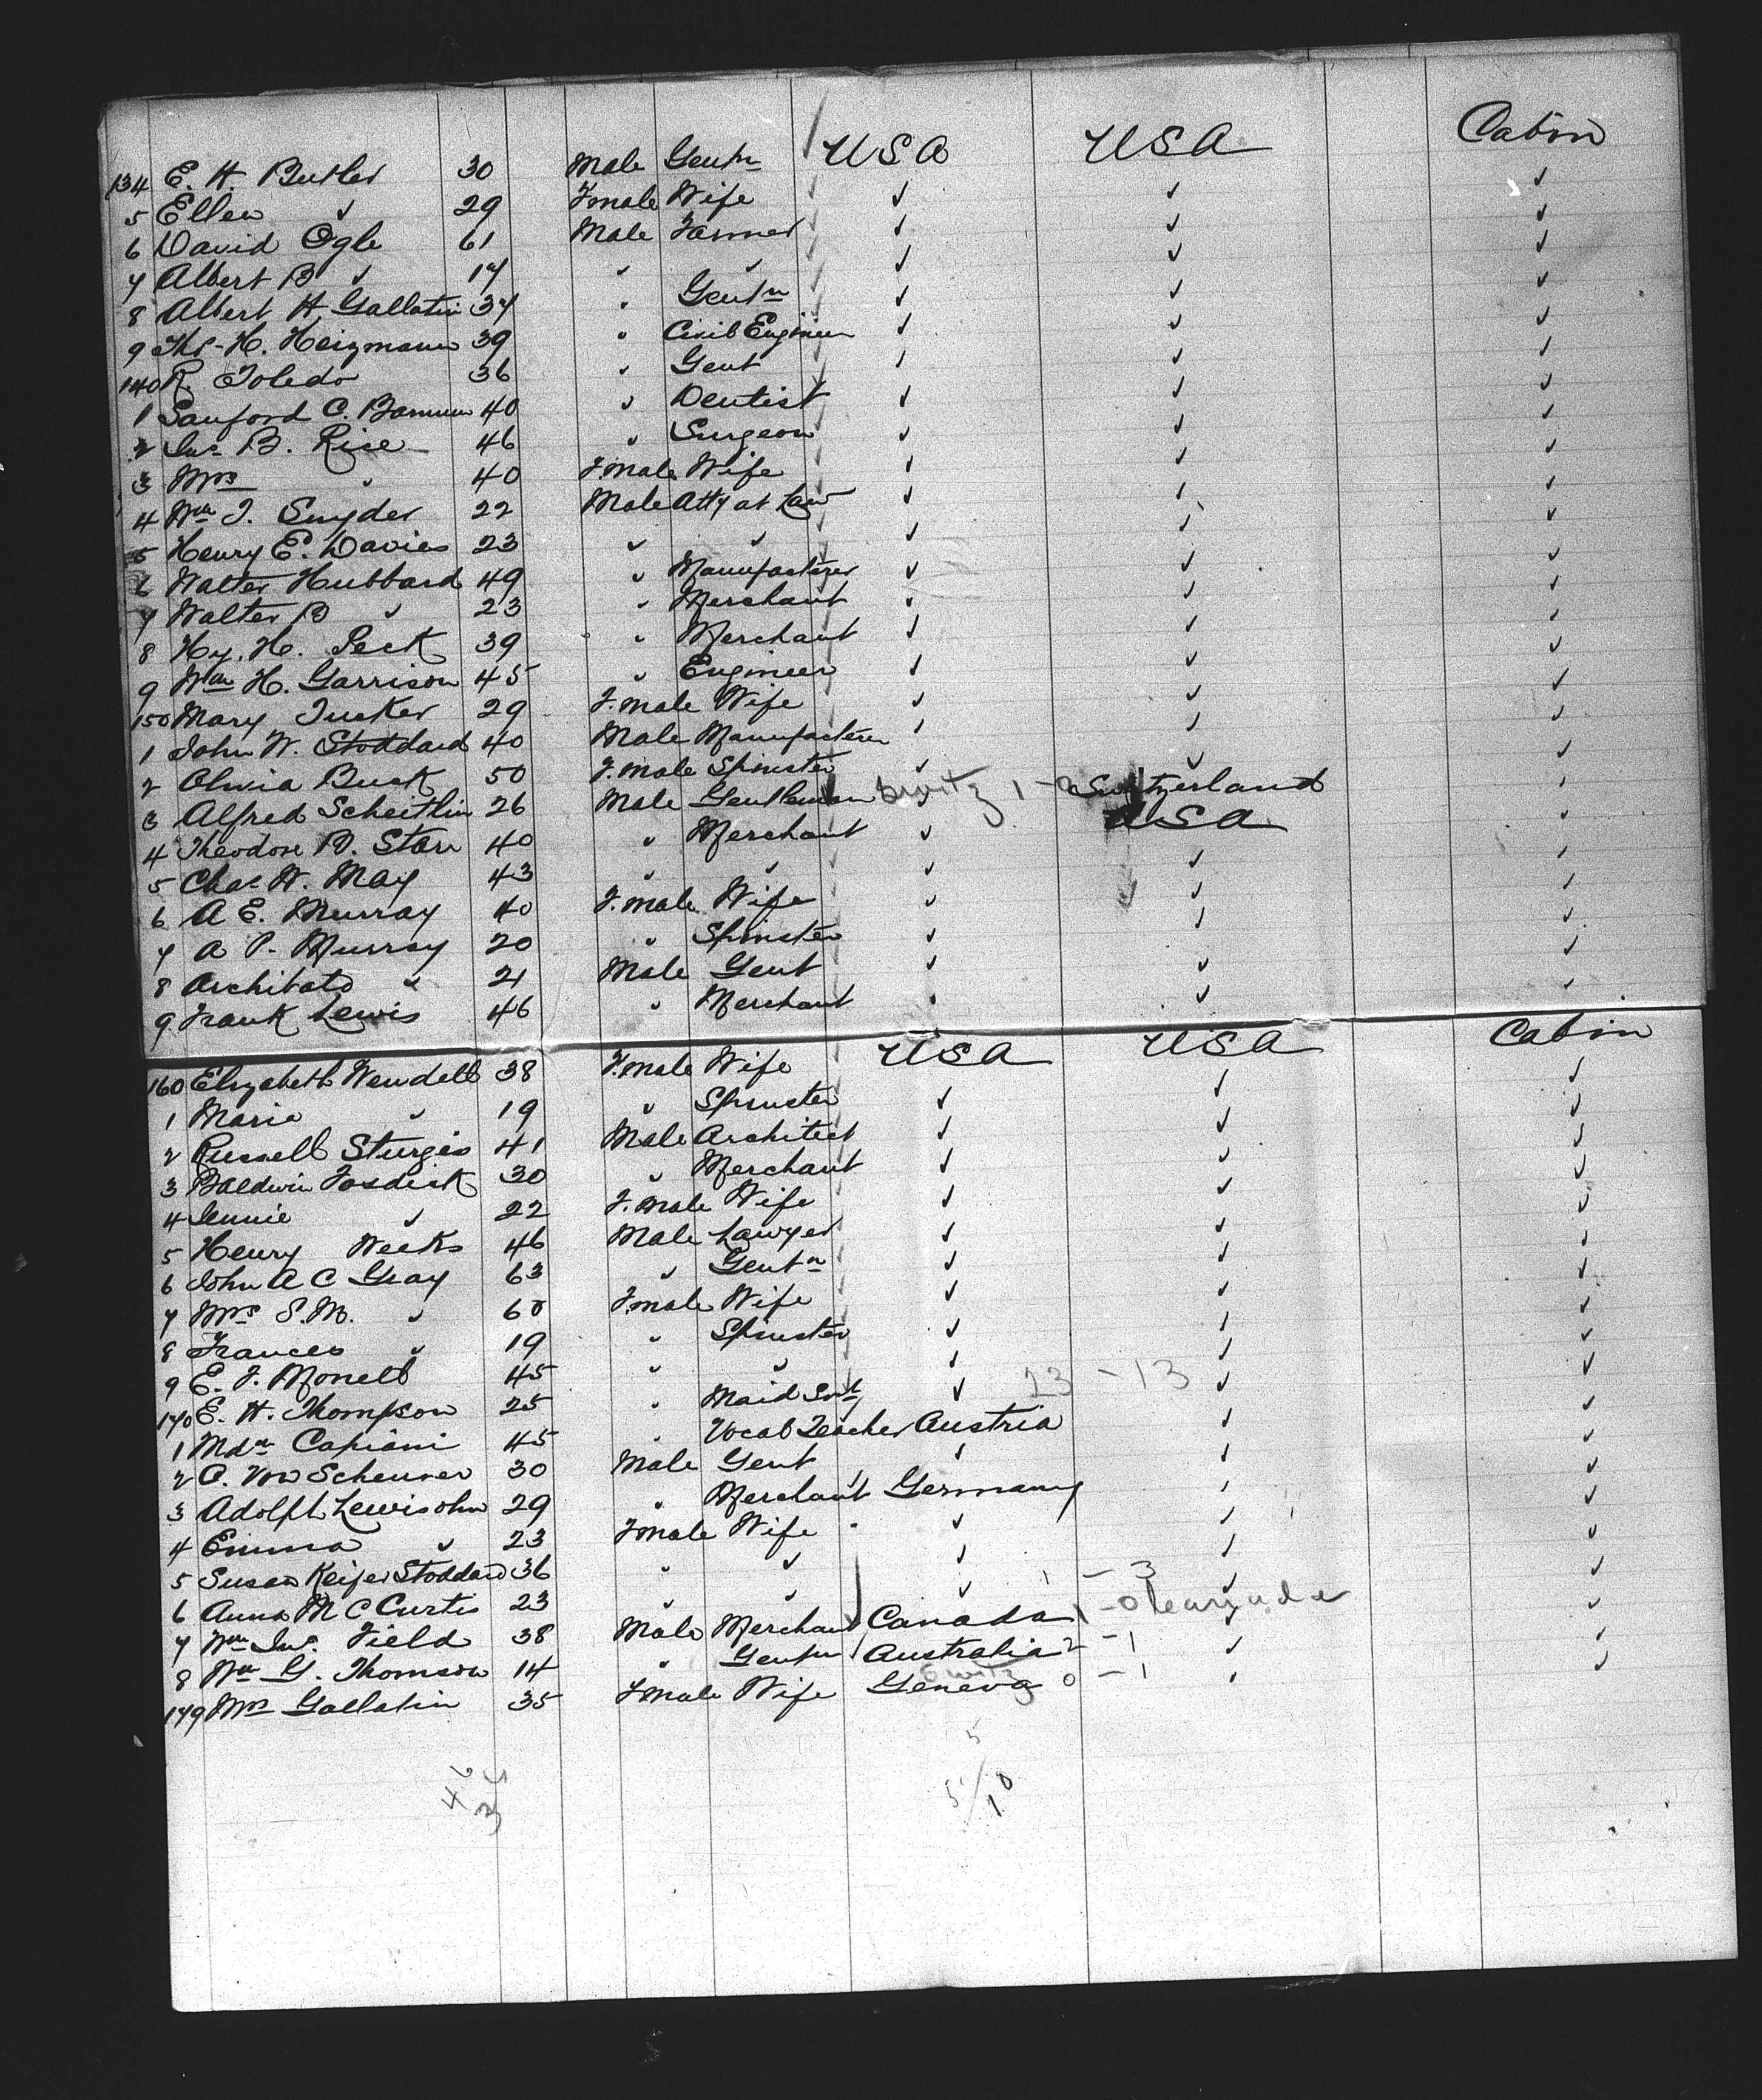 134 E. H. Butler 30 Male Gentn USA USA Cabin
5 Ellen ✓ 29 Fmale Wife ✓ ✓ ✓
6 David Ogle 61 Male Farmer ✓ ✓ ✓
7 Albert B ✓ 17 ✓ ✓ ✓ ✓ ✓
8 Albert H. Gallatin 34 ✓ Gentn ✓ ✓ ✓
9 Ths. H. Heizmann 39 ✓ Civil Engineer ✓ ✓ ✓
140 R. Toledo 36 ✓ Gent ✓ ✓ ✓
1 Sanford C. Barnum 40 ✓ Dentist ✓ ✓ ✓
2 Jno B. Rice 46 ✓ Surgeon ✓ ✓ ✓
3 Mrs ✓ 40 F.male Wife ✓ ✓ ✓
4 Wm J. Snyder 22 Male Atty at Law ✓ ✓ ✓
5 Henry E. Davies 23 ✓ ✓ ✓ ✓ ✓
6 Walter Hubbard 49 ✓ Manufacturer ✓ ✓ ✓
7 Walter B ✓ 23 ✓ Merchant ✓ ✓ ✓
8 Hy. H. Peck 39 ✓ Merchant ✓ ✓ ✓
9 Wm H. Garrison 45 ✓ Engineer ✓ ✓ ✓
150 Mary Tucker 29 F.male Wife ✓ ✓ ✓
1 John W. Stoddard 40 Male Manufacturer ✓ ✓ ✓
2 Olivia Buck 50 F.male Spinster ✓ ✓ ✓
3 Alfred Scheitlin 26 Male Gentleman Switz ✓ 1 - Switzerland ✓
4 Theodore B. Starr 40 ✓ Merchant ✓ USA ✓
5 Chas W. May 43 ✓ ✓ ✓ ✓ ✓
6 A E. Murray 40 F.male Wife ✓ ✓ ✓
7 A P. Murray 20 ✓ Spinster ✓ ✓ ✓
8 Archibald ✓ 21 Male Gent ✓ ✓ ✓
9 Frank Lewis 46 ✓ Merchant ✓ ✓ ✓
160 Elizabeth Wendell 38 F.male Wife USA USA Cabin
1 Marie ✓ 19 ✓ Spinster ✓ ✓ ✓
2 Russell Sturgis 41 Male Architect ✓ ✓ ✓
3 Baldwin Fosdick 30 ✓ Merchant ✓ ✓ ✓
4 Jennie ✓ 22 F.male Wife ✓ ✓ ✓
5 Henry Weeks 46 Male Lawyer ✓ ✓ ✓
6 John A C Gray 63 ✓ Gentn ✓ ✓ ✓
7 Mrs S.M. ✓ 60 F.male Wife ✓ ✓ ✓
8 Frances ✓ 19 ✓ Spinster ✓ ✓ ✓
9 E. J. Monell 45 ✓ ✓ ✓ ✓ ✓
23 - 13
170 E. H. Thompson 25 ✓ Maid Svt ✓ ✓ ✓
1 Mdm Capiani 45 ✓ Vocal Teacher Austria ✓ ✓
2 C. Von Scheurer 30 Male Gent ✓ ✓ ✓
3 Adolph Lewisohn 29 ✓ Merchant Germany ✓ ✓
4 Emma ✓ 23 Fmale Wife ✓ ✓ ✓
5 Susan Keifer Stoddard 36 ✓ ✓ ✓ ✓ ✓
6 Anna McCurtis 23 ✓ ✓ ✓ 1 - 3 ✓ ✓
7 Wm Jno. Field 38 Male Merchant Canada 1 - 0 ✓ ✓
8 Wm G. Thomson 14 ✓ Gentn Australia 2 - 1 ✓ ✓
179 Mrs Gallatin 35 Fmale Wife Geneva Switz 0 - 1 ✓ ✓
5
5/10
46
34